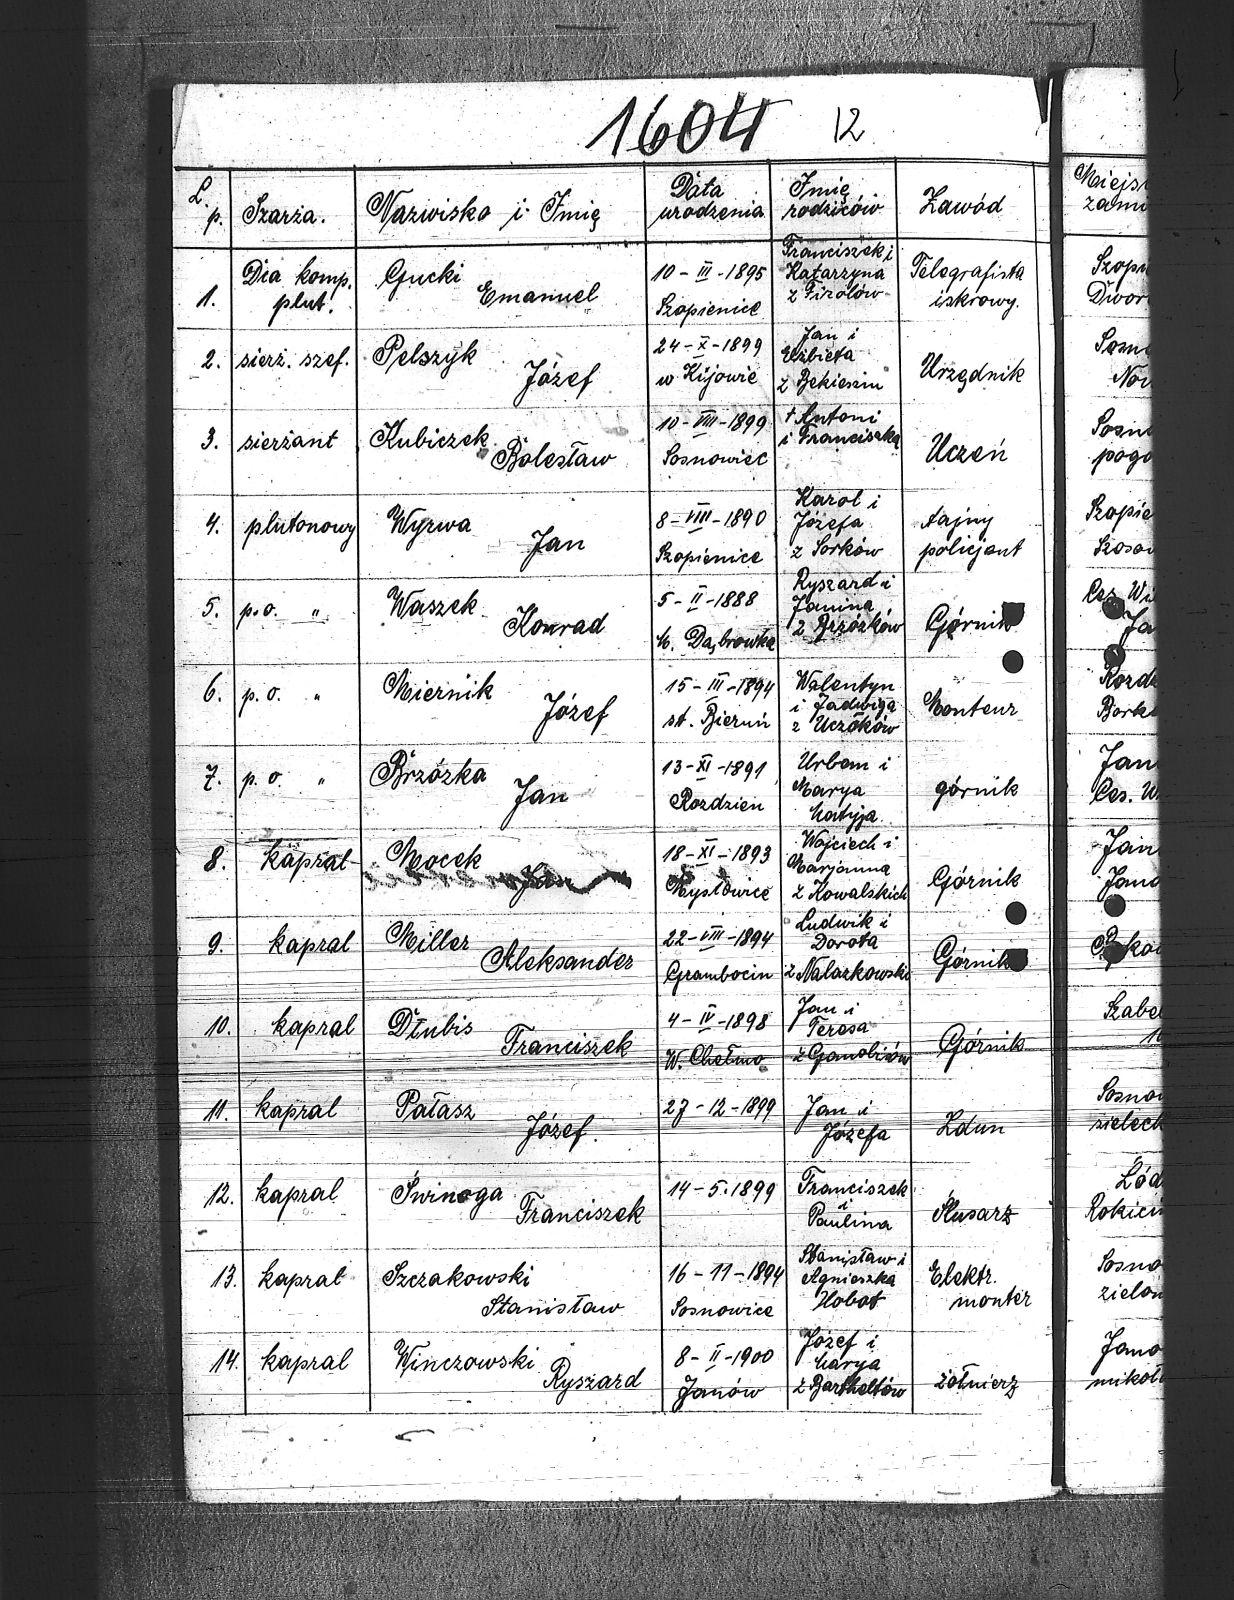 1604 12
L. p. Szarża. Nazwisko i Imię Data urodzenia Imię rodziców Zawód
1. Dca komp. plut. Gucki Emanuel 10-III-1895 Szopienice Franciszek i Katarzyna z Tirolów Telegrafista iskrowy.
2. sierż. szef. Pelszyk Józef 24-X-1899 w Kijowie Jan i Elżbieta z Bekieszin Urzędnik
3. sierżant Kubiczek Bolesław 10-VIII-1899 Sosnowiec † Antoni i Franciszka Uczeń
4. plutonowy Wyrwa Jan 8-VIII-1890 Szopienice Karol i Józefa z Sorków tajny policjant
5. p.o. " Waszek Konrad 5-II-1888 M. Dąbrowka Ryszard i Janina z Brzózków Górnik
6. p.o. " Miernik Józef 15-III-1894 st. Bieruń Walentyn i Jadwiga z Uczoków Monteur
7. p.o. " Brzózka Jan 13-XI-1891 Rozdzien Urban i Marya Matyja górnik
8. kapral Mocek Jan 18-XI-1893 Mysłowice Wojciech i Maryanna z Kowalskich Górnik
9. kapral Miller Aleksander 22-VIII-1894 Grambocin Ludwik i Dorota z Nalazkowski Górnik
10. kapral Dłubis Franciszek 4-IV-1898 W. Chełmo Jan i Teresa z Górnik
11. kapral Pałasz Józef. 27-12-1899 Jan i Józefa Zdun
12. kapral Świnoga Franciszek 14-5-1899 Franciszek i Paulina Ślusarz
13. kapral Szczakowski Stanisław 16-11-1894 Sosnowice Stanisław i Agnieszka Hobot Elektr. monter
14. kapral Winczowski Ryszard 8-II-1900 Janów Józef i Marya z Bartheltów żołnierz